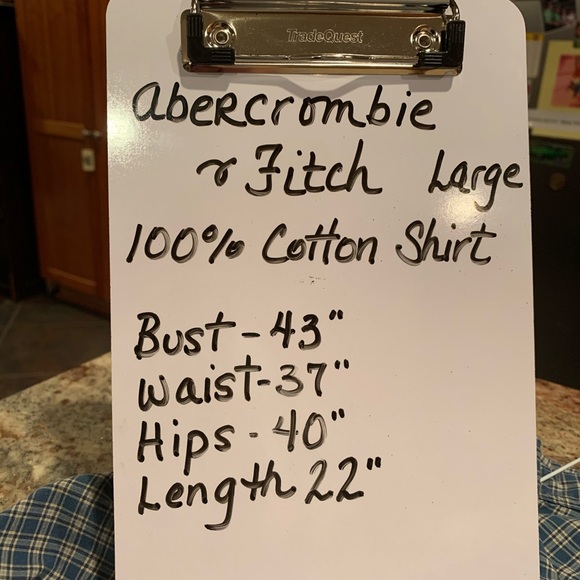 TradeQuest
Abercrombie
& Fitch Large
100% Cotton Shirt
Bust - 43"
Waist - 37"
Hips - 40"
Length 22"